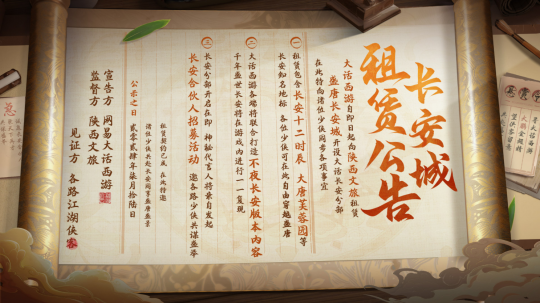 长安城
租赁公告
大话西游自即日起向陕西文旅租赁
盛唐长安城 开设大话长安分部
在此特向诸位少侠同步各项事宜
一 租赁包含长安十二时辰 大唐芙蓉园等
长安知名地标 各位少侠可在此自由穿越盛唐
二 大话西游各端将联合打造不夜长安版本内容
千年盛世长安将在游戏内进行一一复现
三 长安分部开启在即 神秘代言人将亲自发起
长安合伙人招募活动 邀各路少侠共谋盛举
租赁契约已成 在此特邀
诸位少侠共赴长安同享盛唐盛景
公示之日 贰零贰肆年柒月拾陆日
宣告方 网易大话西游
监督方 陕西文旅
见证方 各路江湖侠客